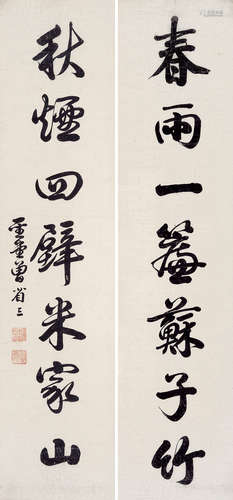 春雨一簾蘇子竹
秋煙四壁米家山
曾省三